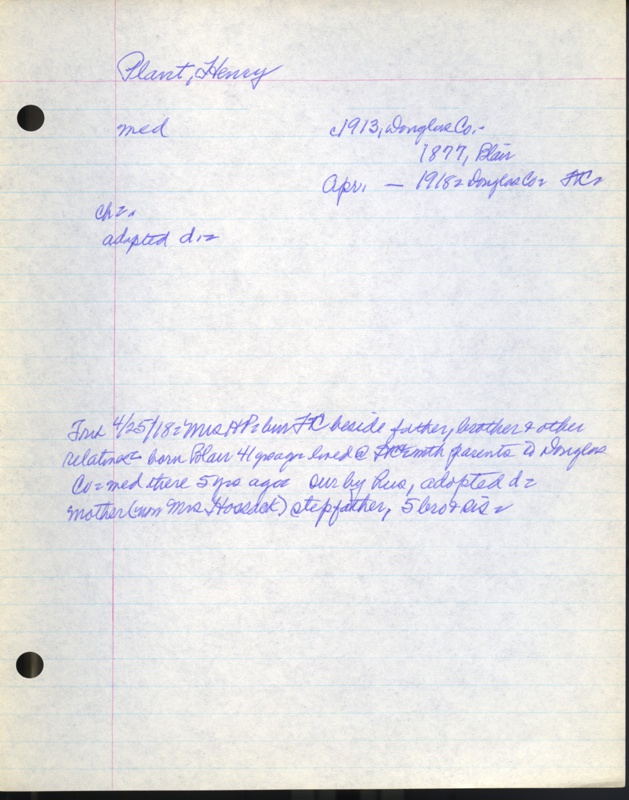 Plant, Henry
med c1913, Douglas Co.-
1877, Blair
Apr. — 1918= Douglas Co= FC=
ch=.
adopted d.=
4/25/18= Mrs HP= bur FC beside father, brother & other
relatives= born Blair 41 yrs ago= lived @ FC= with parents to Douglas
Co= med there 5 yrs ago= sur by hus, adopted d=
mother (now Mrs. Hossack) stepfather, 5 bro & sis=